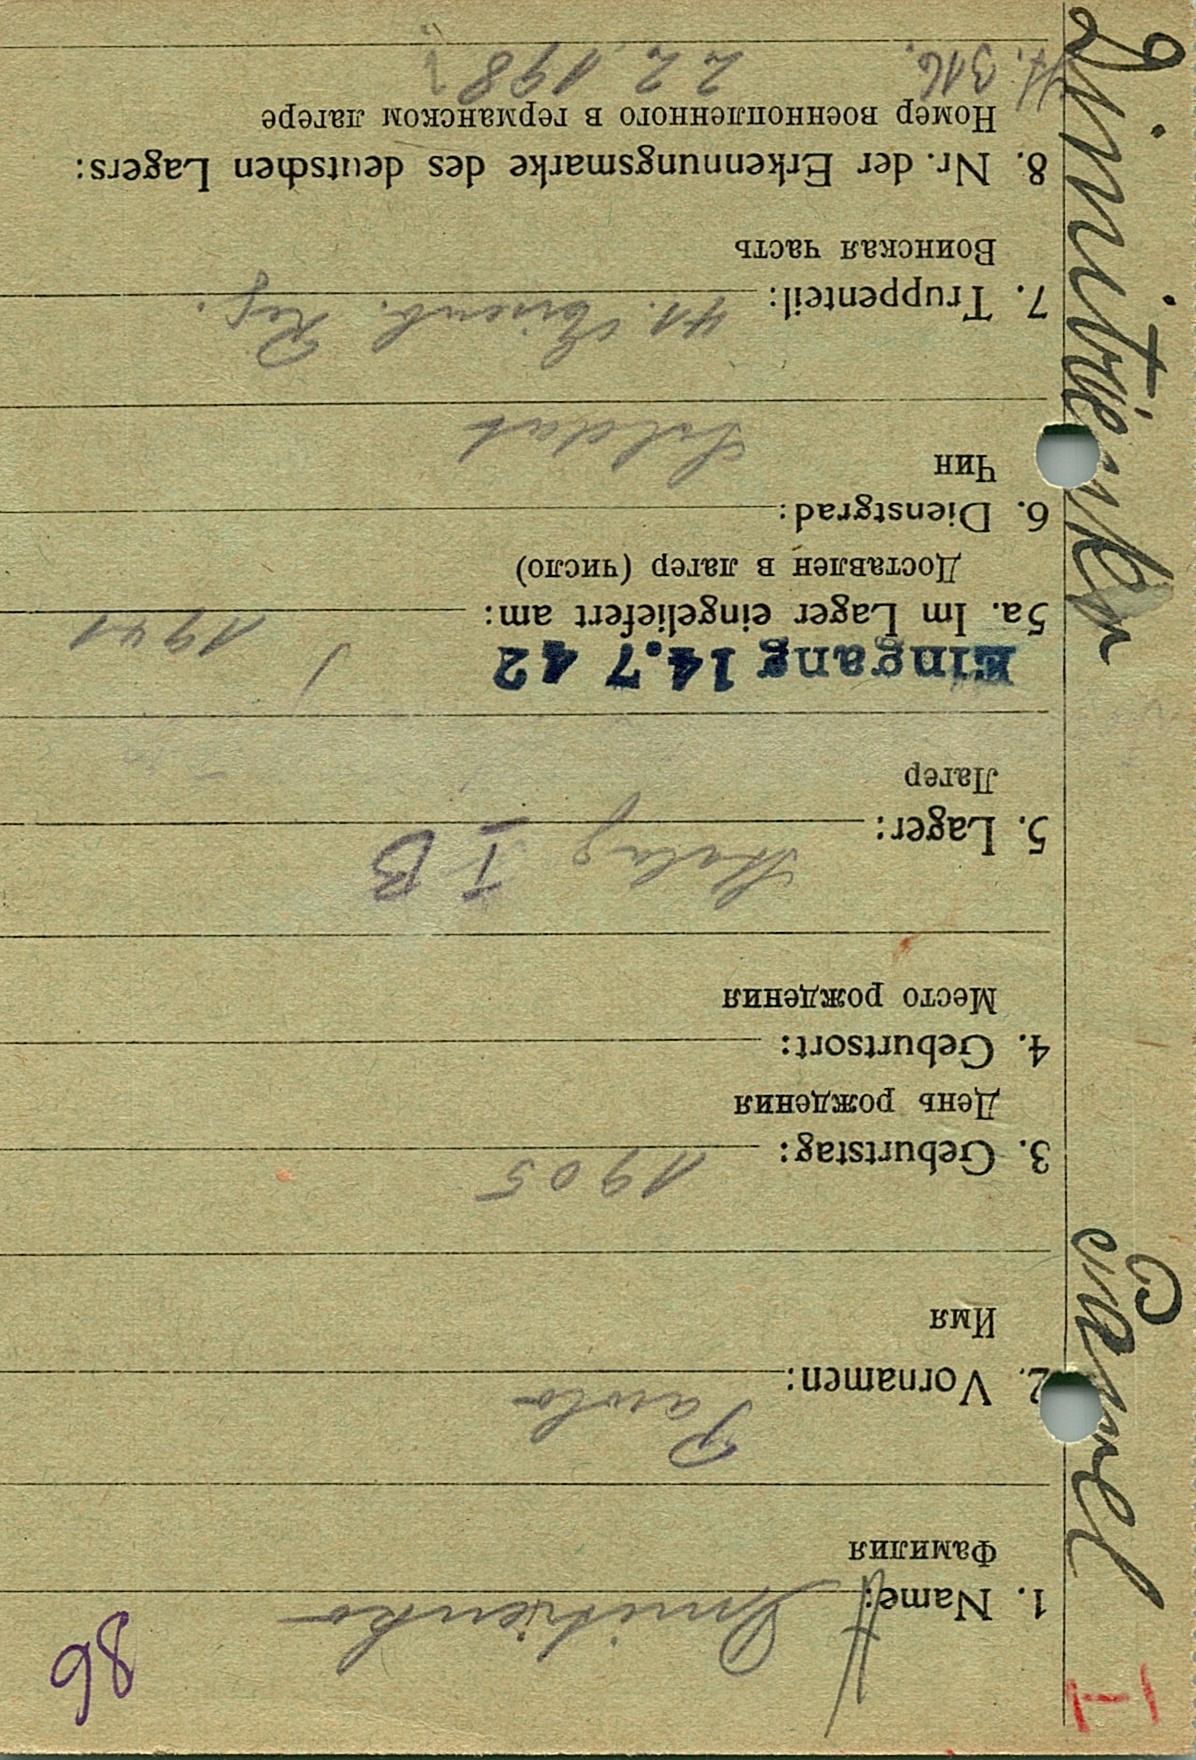 98
1. Name: Dmitrienko
Фамилия
2. Vornamen: Pawlo
Имя
3. Geburtstag: 1905
День рождения
4. Geburtsort:
Место рождения
5. Lager: Stalag I B
Лагер
Eingang 14.7 42
5a. Im Lager eingeliefert am: 1941
Доставлен в лагер (число)
6. Dienstgrad: Soldat
Чин
7. Truppenteil: 41. Reg.
Воинская часть
8. Nr. der Erkennungsmarke des deutschen Lagers:
Номер военнопленного в германском лагере
316. 22198
Dimitrienko
Pawel